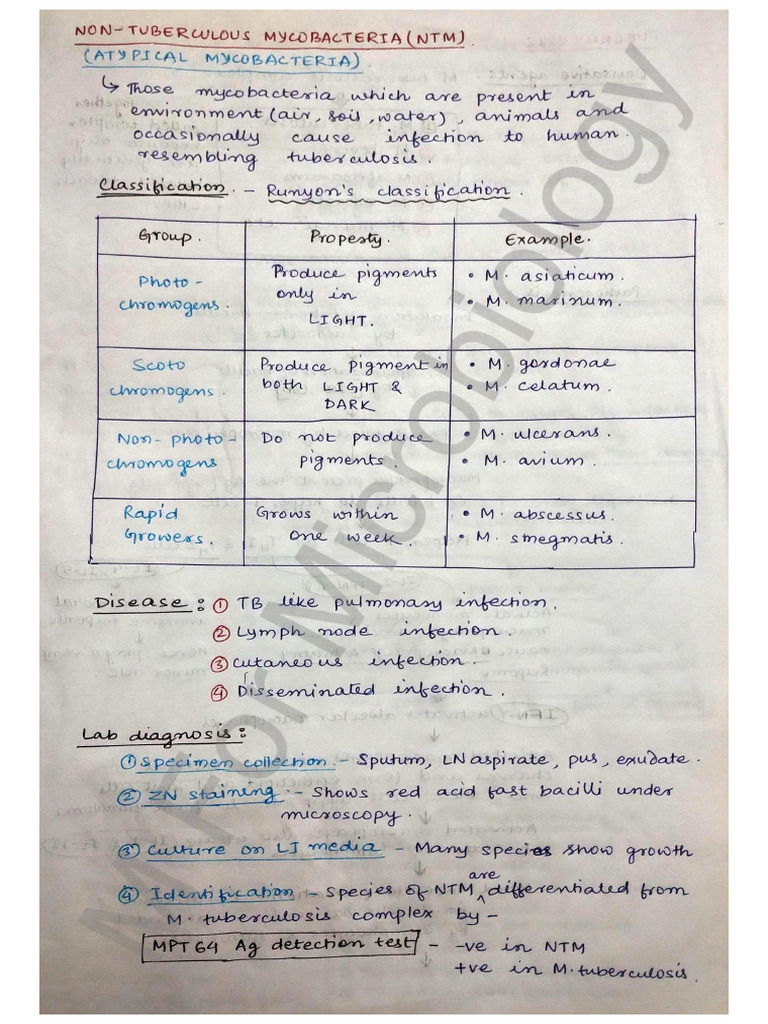 NON-TUBERCULOUS MYCOBACTERIA (NTM).
(ATYPICAL MYCOBACTERIA).
↳ Those mycobacteria which are present in
environment (air, soil, water), animals and
occasionally cause infection to human.
resembling tuberculosis.
Classification. - Runyon's classification.
Group. Property. Example.
Photo-
chromogens.
Produce pigments
only in
LIGHT.
• M. asiaticum.
• M. marinum.
Scoto
chromogens.
Produce pigment in
both LIGHT &
DARK
• M. gordonae
• M. celatum.
Non-photo-
chromogens
Do not produce
pigments.
• M. ulcerans.
• M. avium.
Rapid
Growers.
Grows within
one week.
• M. abscessus.
• M. smegmatis.
Disease: ① TB like pulmonary infection.
② Lymph node infection.
③ Cutaneous infection.
④ Disseminated infection.
Lab diagnosis:
① Specimen collection - Sputum, LN aspirate, pus, exudate.
② ZN staining - Shows red acid fast bacilli under
microscopy.
③ Culture on LJ media - Many species show growth
④ Identification - Species of NTM are differentiated from
M. tuberculosis complex by -
MPT64 Ag detection test - -ve in NTM
+ve in M. tuberculosis.
M For Microbiology